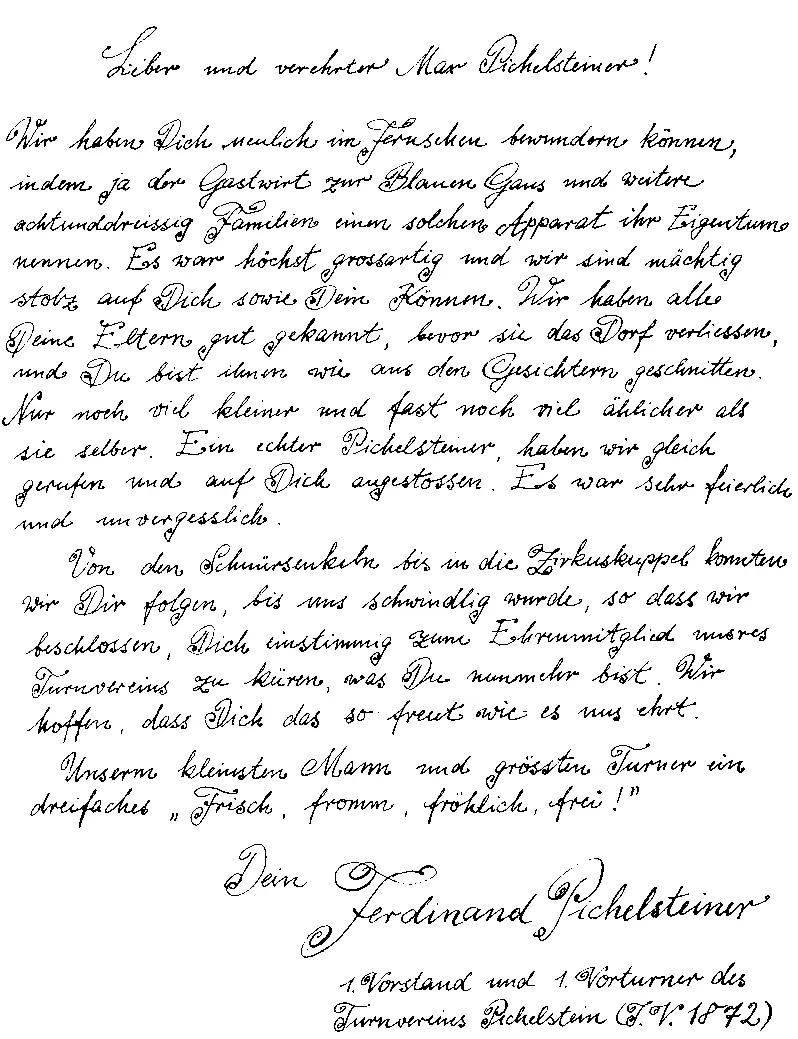 Lieber und verehrter Max Pichelsteiner!
Wir haben Dich neulich im Fernsehen bewundern können,
indem ja der Gastwirt zur Blauen Gans und weitere
achtunddreissig Familien einen solchen Apparat ihr Eigentum
nennen. Es war höchst grossartig und wir sind mächtig
stolz auf Dich sowie Dein Können. Wir haben alle
Deine Eltern gut gekannt, bevor sie das Dorf verliessen,
und Du bist ihnen wie aus den Gesichtern geschnitten.
Nur noch viel kleiner und fast noch viel ählicher als
sie selber. Ein echter Pichelsteiner, haben wir gleich
gerufen und auf Dich angestossen. Es war sehr feierlich
und unvergesslich.
Von den Schnürsenkeln bis in die Zirkuskuppel konnten
wir Dir folgen, bis uns schwindlig wurde, so dass wir
beschlossen, Dich einstimmig zum Ehrenmitglied unsres
Turnvereins zu küren, was Du nunmehr bist. Wir
hoffen, dass Dich das so freut wie es uns ehrt.
Unserm kleinsten Mann und grössten Turner ein
dreifaches „Frisch, fromm, fröhlich, frei!"
Dein Ferdinand Pichelsteiner
1. Vorstand und 1. Vorturner des
Turnvereins Pichelstein (T.V. 1872)